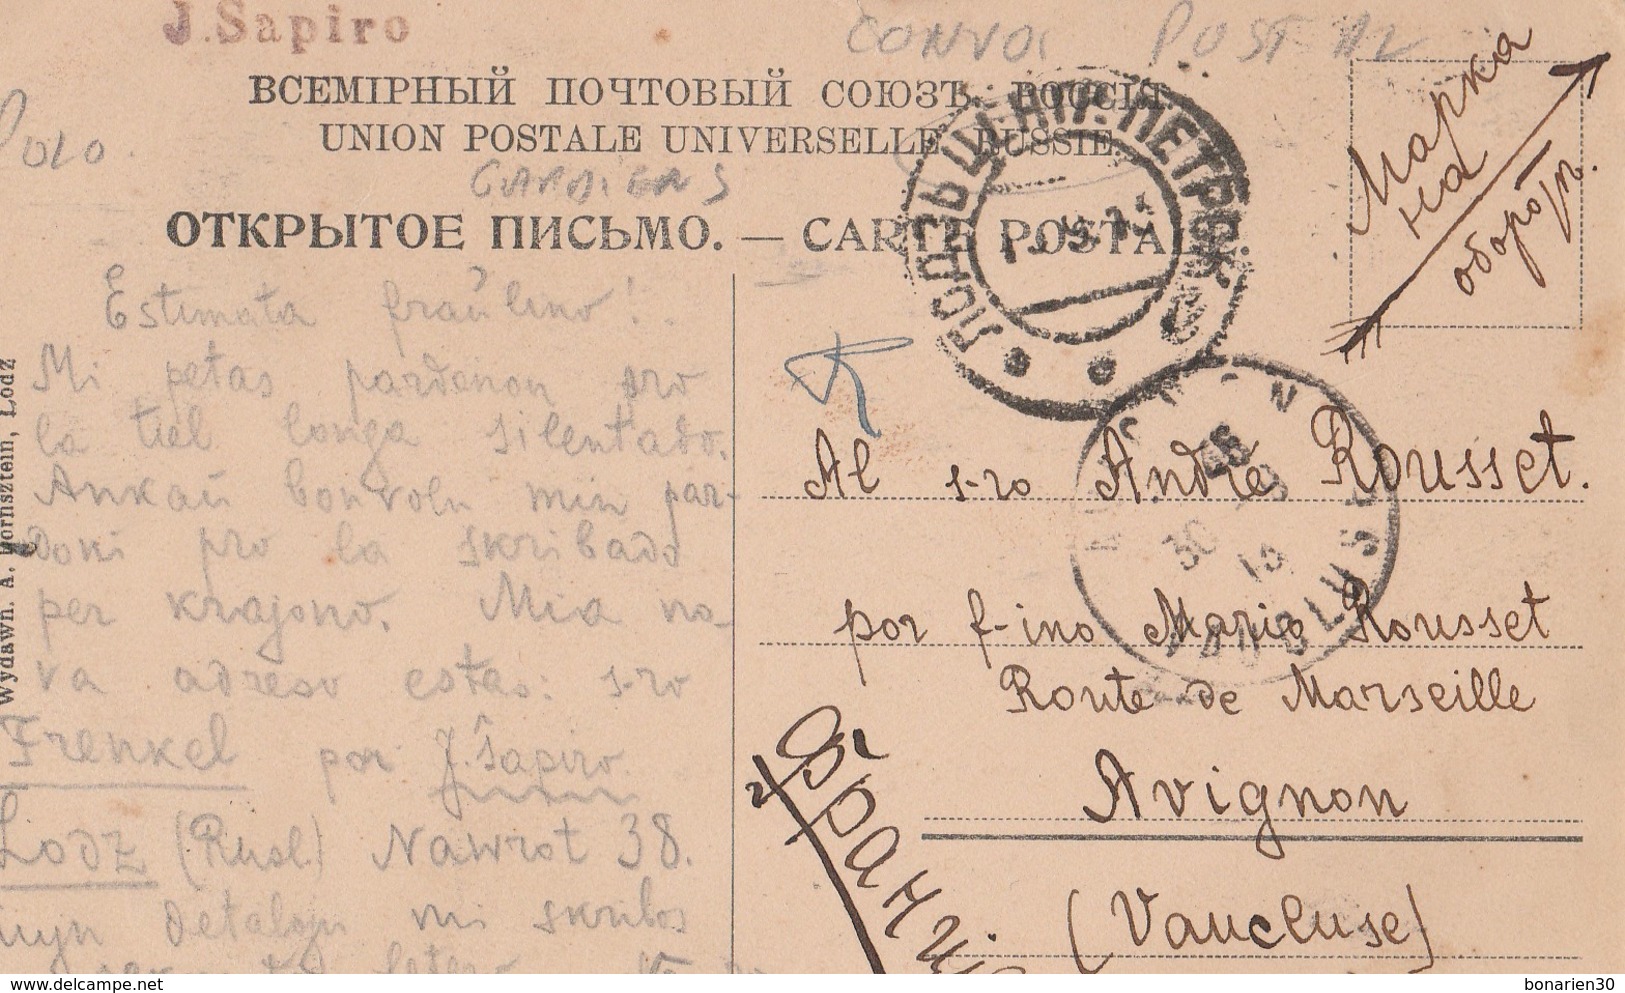 J. Sapiro
CONVOI POST
ВСЕМІРНЫЙ ПОЧТОВЫЙ СОЮЗЪ. РОССІЯ.
UNION POSTALE UNIVERSELLE. RUSSIE.
ОТКРЫТОЕ ПИСЬМО. — CARTE POSTALE
Марка
на
оборот.
Estimata fraŭlino!
Mi petas pardonon pro
la tiel longa silentado.
Ankaŭ bonvolu min par-
doni pro la skribado
per krajono. Mia no-
va adreso estas: s-ro
Frenkel por J. Ŝapiro
Lodz (Rusl.) Nawrot 38.
detalojn mi skribos
letero
Wydawn. A. Hornsztein, Lodz
Al s-ro André Rousset.
por f-ino Mario Rousset
Route de Marseille
Avignon
(Vaucluse)
AVIGNON
VAUCLUSE
bonarien30